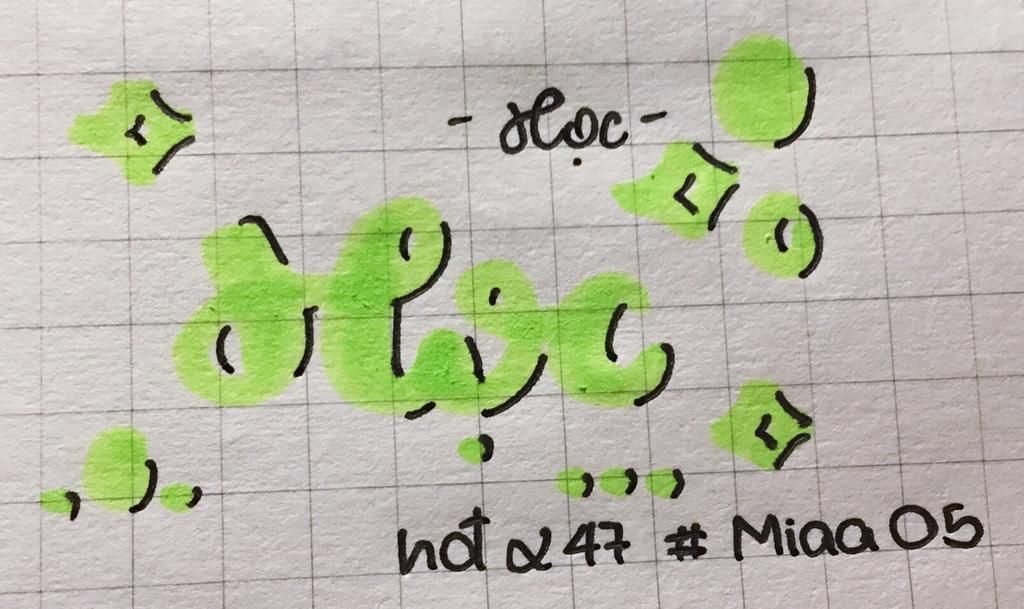 - Học -
Học
hot α 47 # Miaa 05